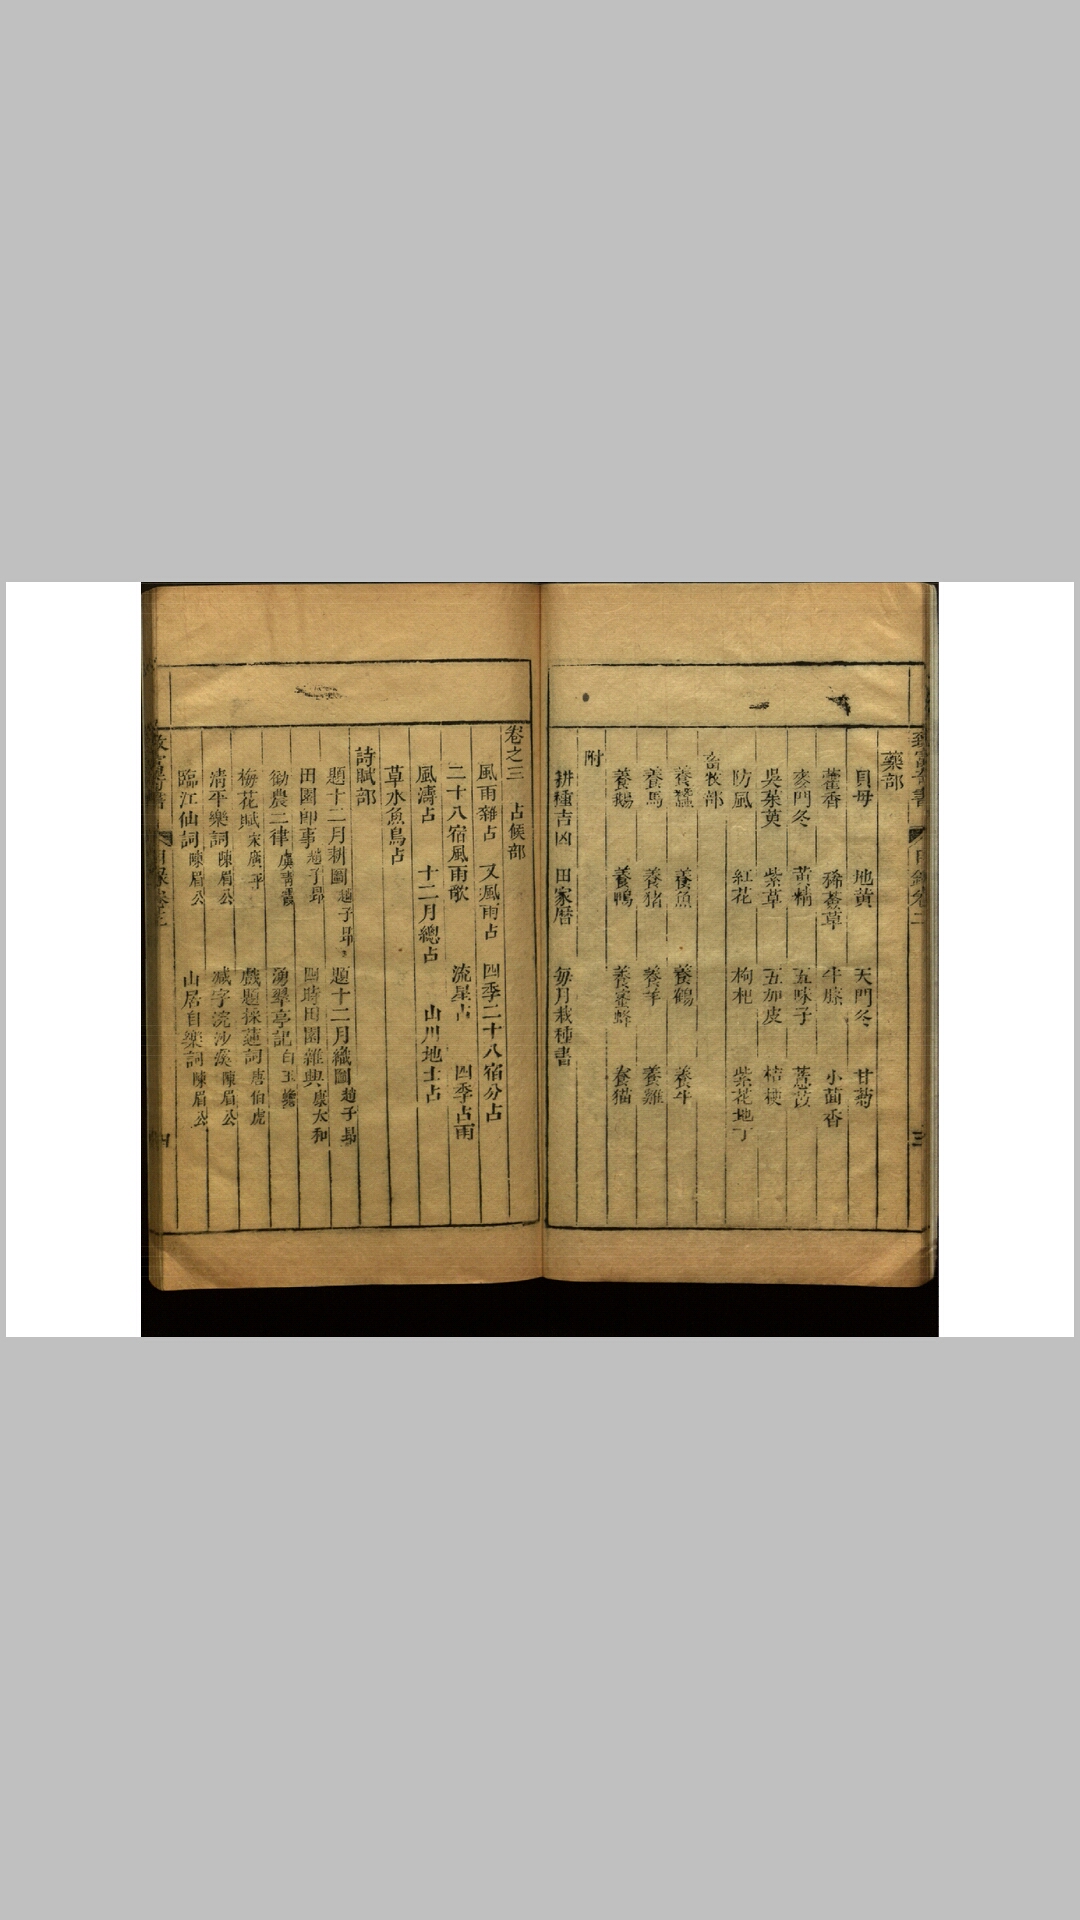 藥部
貝母 地黃 天門冬 甘菊
藿香 豨薟草 牛膝 小茴香
麥門冬 黃精 五味子 薏苡
吳茱萸 紫草 五加皮 桔梗
防風 紅花 枸杞 紫花地丁
畜牧部
養蠶 養魚 養鶴 養牛
養馬 養猪 養羊 養雞
養鵝 養鴨 養蜜蜂 養猫
附
耕種吉凶 田家曆 每月栽種書
卷之三 占候部
風雨雜占 又風雨占 四季二十八宿分占
二十八宿風雨歌 流星占 四季占雨
風濤占 十二月總占 山川地土占
草水魚鳥占
詩賦部
題十二月耕圖 趙子昂 題十二月織圖 趙子昂
田園即事 趙子昂 四時田園雜興 康太和
勸農二律 虞靑霞 湧翠亭記 白玉蟾
梅花賦 宋廣平 戲題採蓮詞 唐伯虎
淸平樂詞 陳眉公 減字浣沙溪 陳眉公
臨江仙詞 陳眉公 山居自樂詞 陳眉公
四